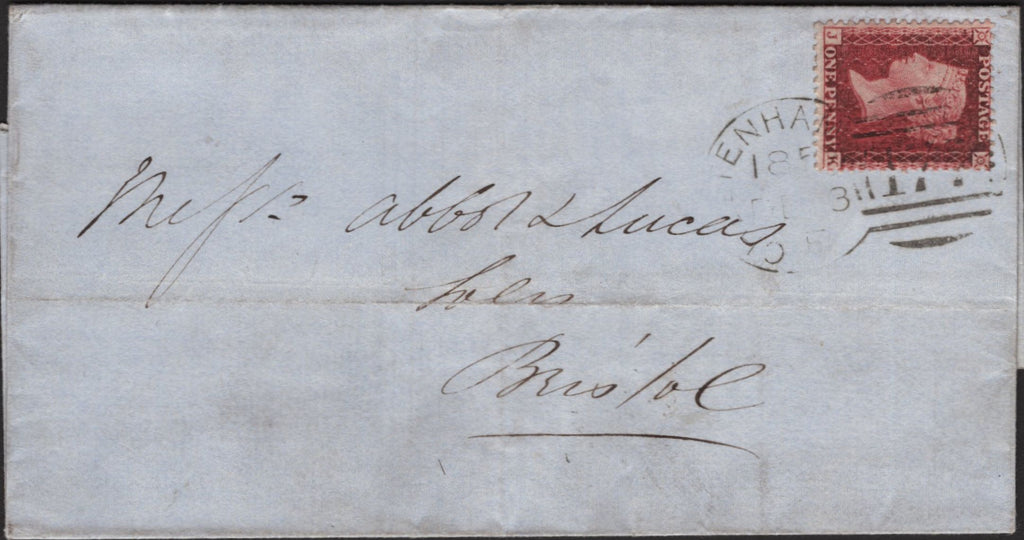 POSTAGE
J ONE PENNY K
ENHA
185
31
177
Messrs Abbot & Lucas
Solrs
Bristol